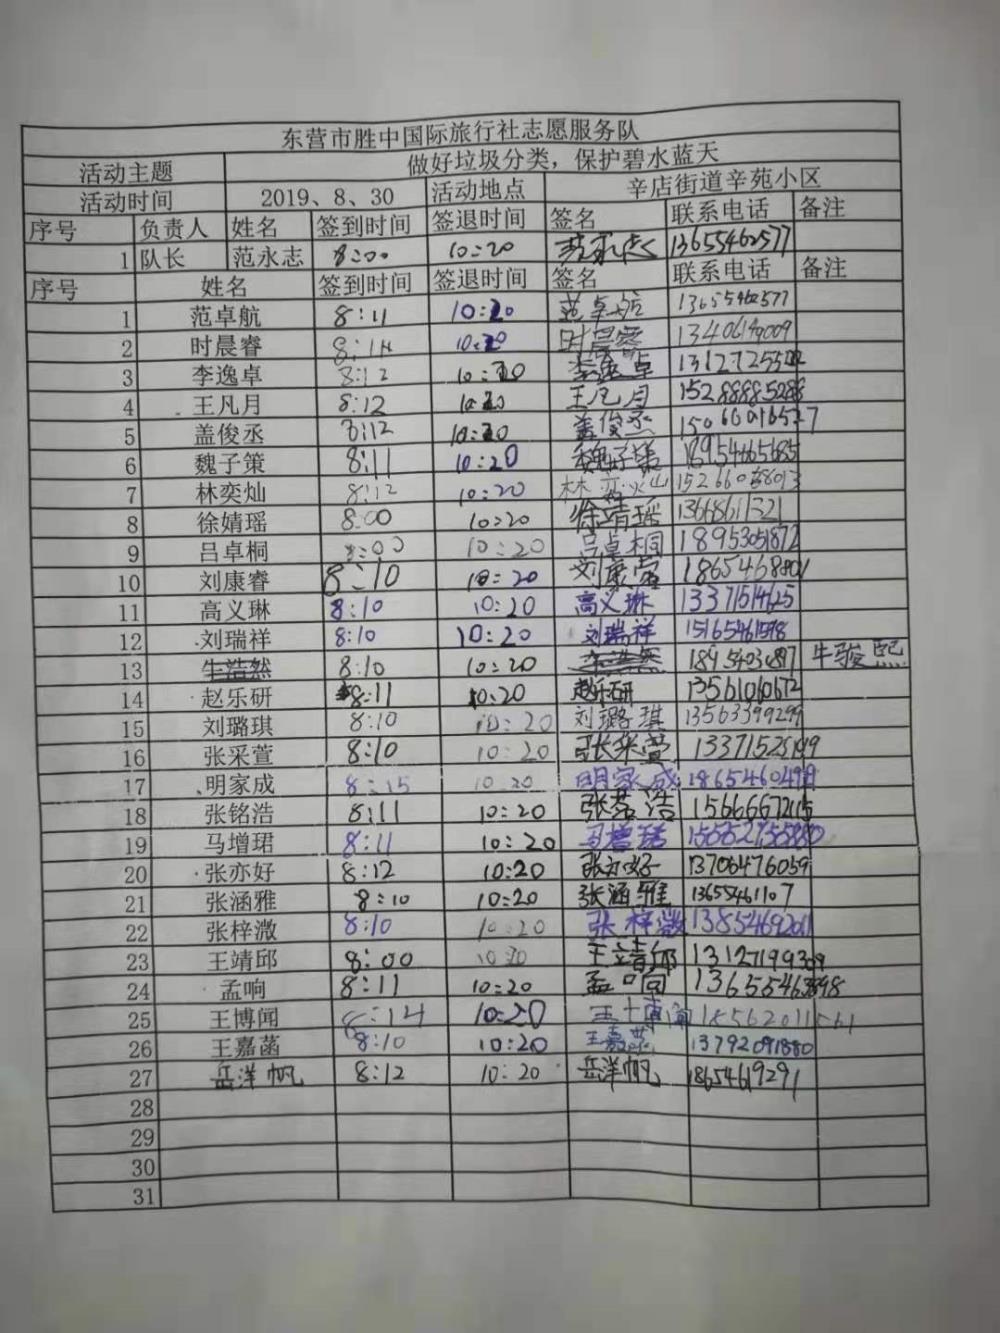 东营市胜中国际旅行社志愿服务队
活动主题 做好垃圾分类，保护碧水蓝天
活动时间 2019、8、30 活动地点 辛店街道辛苑小区
序号 负责人 姓名 签到时间 签退时间 签名 联系电话 备注
1 队长 范永志 8:00 10:20 范永志 13655462577
序号 姓名 签到时间 签退时间 签名 联系电话 备注
1 范卓航 8:11 10:20 范卓航 13655462577
2 时晨睿 8:14 10:20 时晨睿
3 李逸卓 8:12 10:20 李逸卓
4 王凡月 8:12 10:20 王凡月
5 盖俊丞 8:12 10:20 盖俊丞
6 魏子策 8:11 10:20 魏子策 18954665685
7 林奕灿 8:12 10:20 林奕灿
8 徐婧瑶 8:00 10:20 徐婧瑶 13668611321
9 吕卓桐 8:00 10:20 吕卓桐 18953051872
10 刘康睿 8:10 10:20 刘康睿
11 高义琳 8:10 10:20 高义琳 13371514625
12 刘瑞祥 8:10 10:20 刘瑞祥 15165461598
13 牛浩然 8:10 10:20 牛骏熙
14 赵乐研 8:11 10:20 赵乐研 13561060672
15 刘璐琪 8:10 10:20 刘璐琪 13563399299
16 张采萱 8:10 10:20 张采萱
17 明家成 8:15 10:20 明家成
18 张铭浩 8:11 10:20 张茗浩
19 马增珺 8:11 10:20 马增珺
20 张亦好 8:12 10:20 张亦好 13706476059
21 张涵雅 8:10 10:20 张涵雅 13655461107
22 张梓溦 8:10 10:20 张梓溦
23 王靖邱 8:00 10:20 王靖邱
24 孟响 8:11 10:20 孟响
25 王博闻 8:14 10:20 王博闻 18562011561
26 王嘉菡 8:10 10:20 王嘉菡 13792091880
27 岳洋帆 8:12 10:20 岳洋帆 18654619291
28
29
30
31